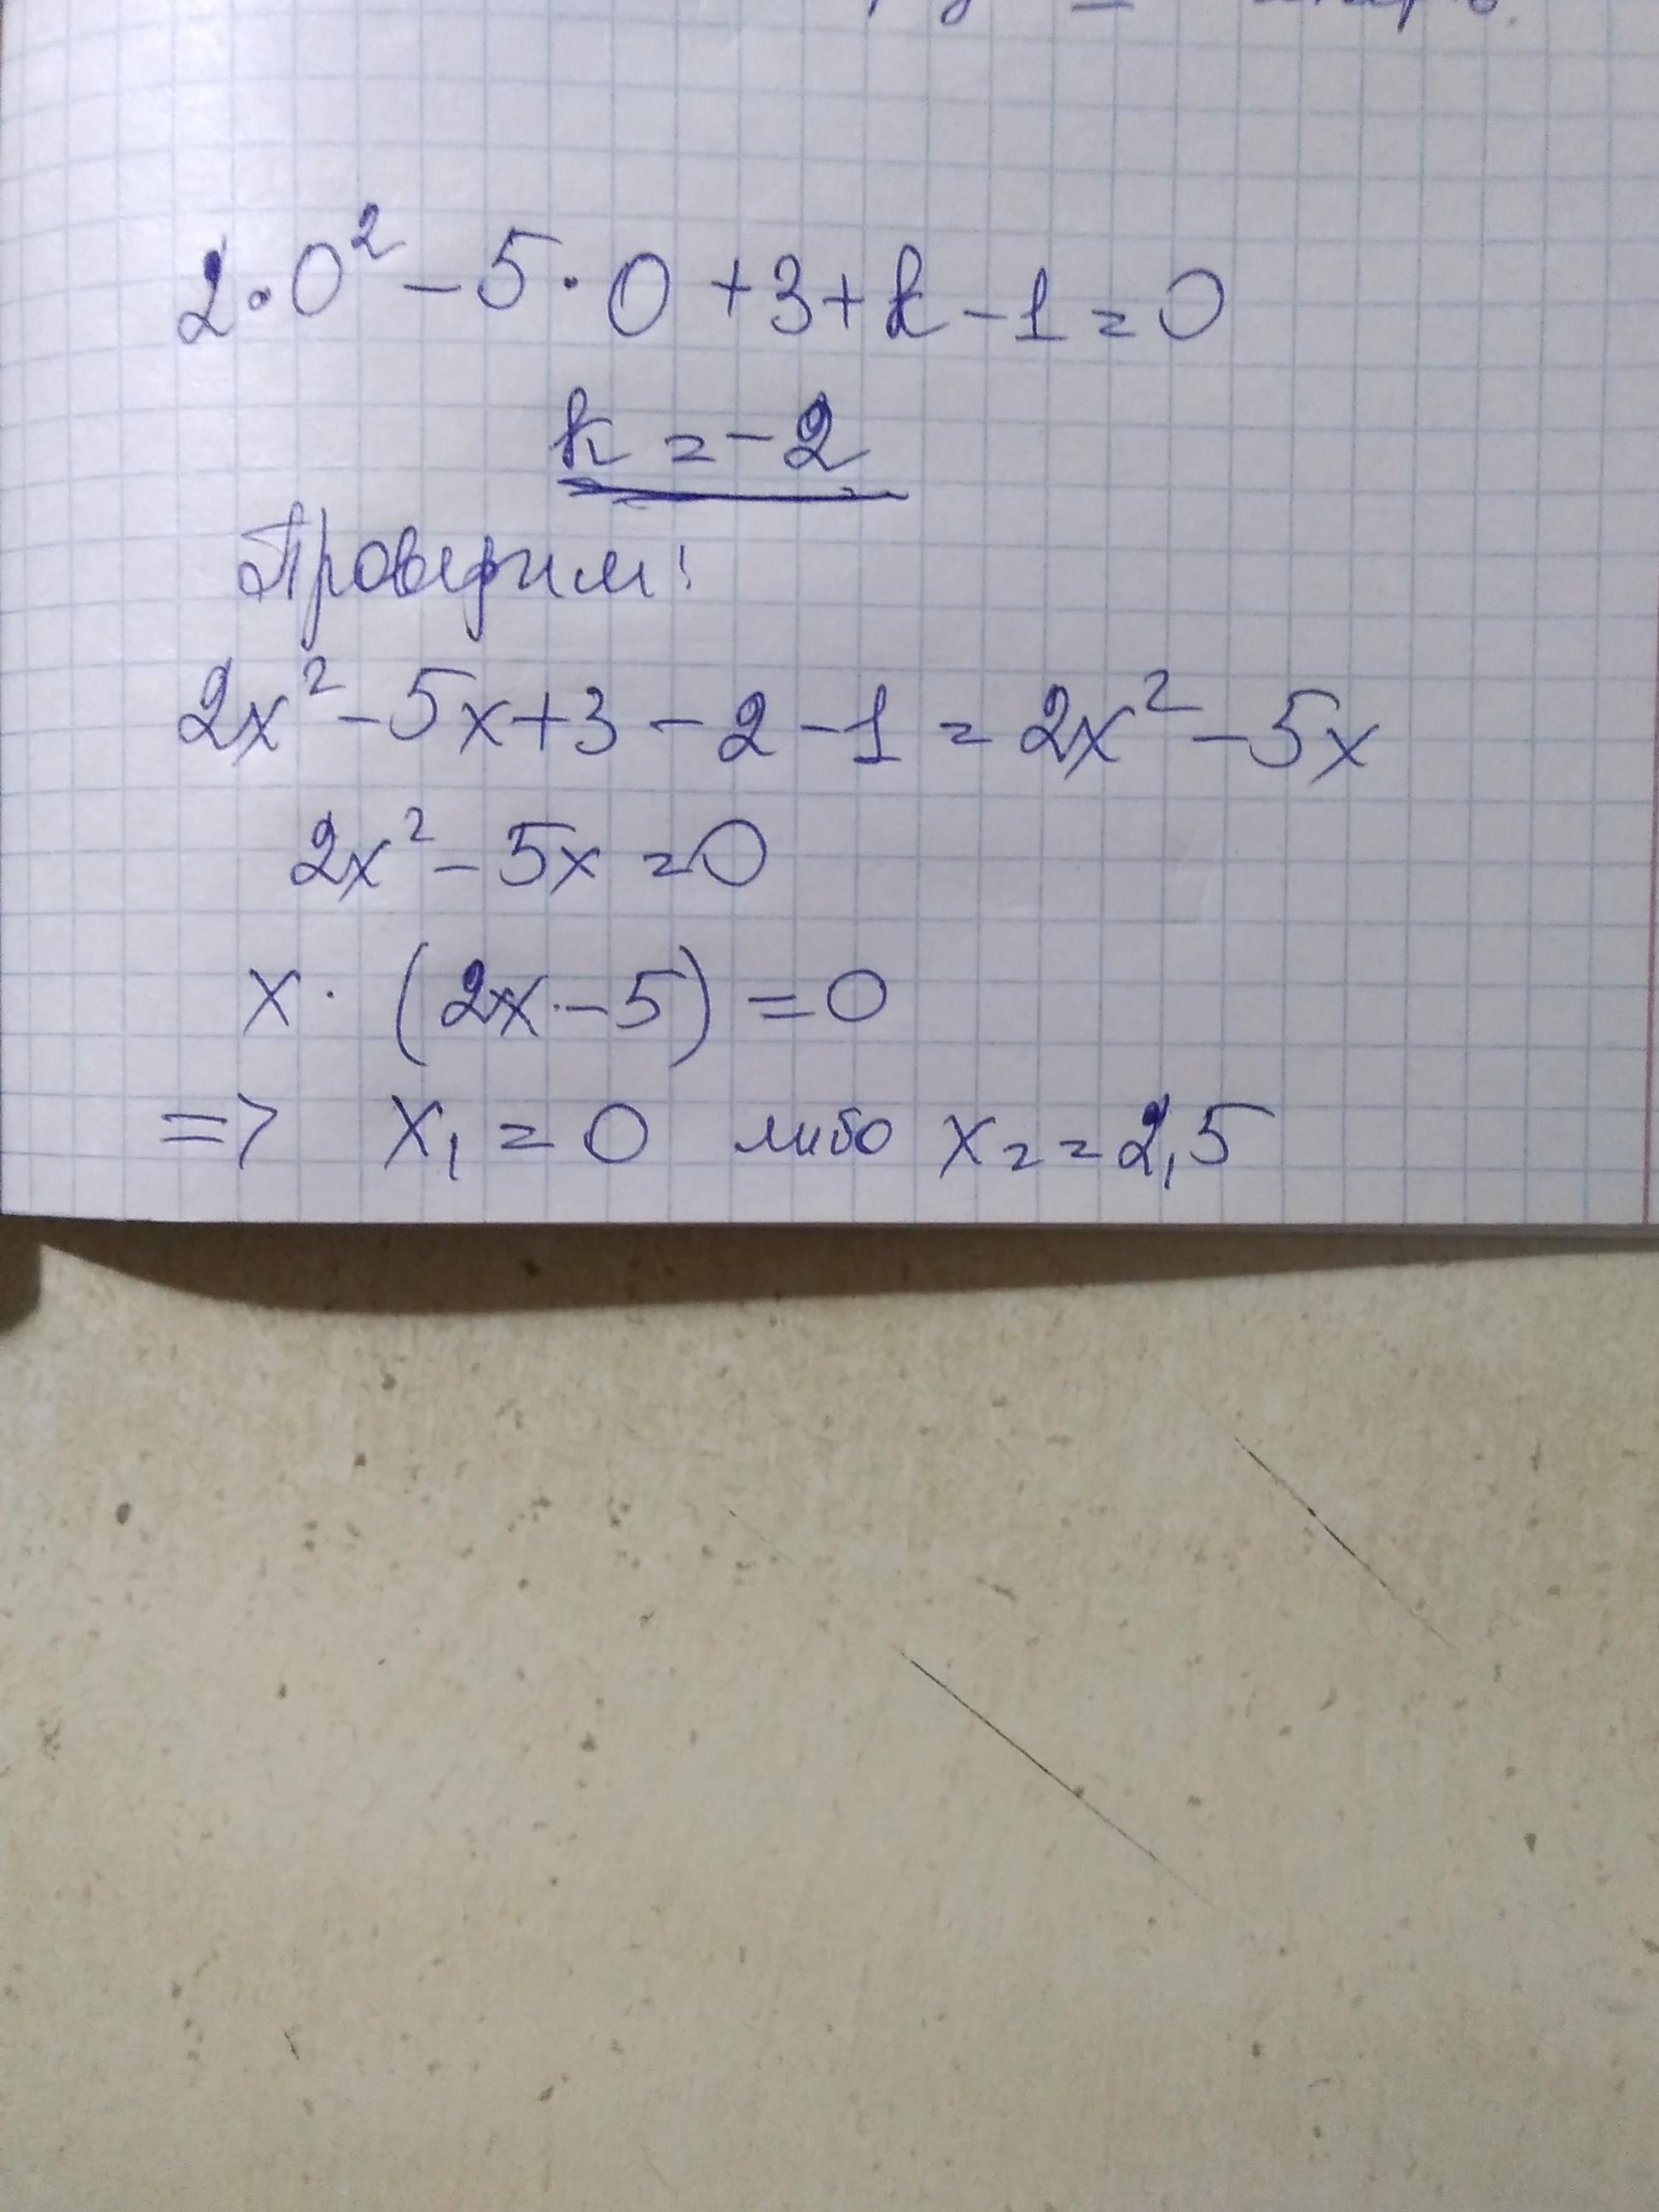 2·0² - 5·0 + 3 + k - 1 = 0
k = -2
Проверим:
2x² - 5x + 3 - 2 - 1 = 2x² - 5x
2x² - 5x = 0
x · (2x - 5) = 0
=> x₁ = 0 либо x₂ = 2,5